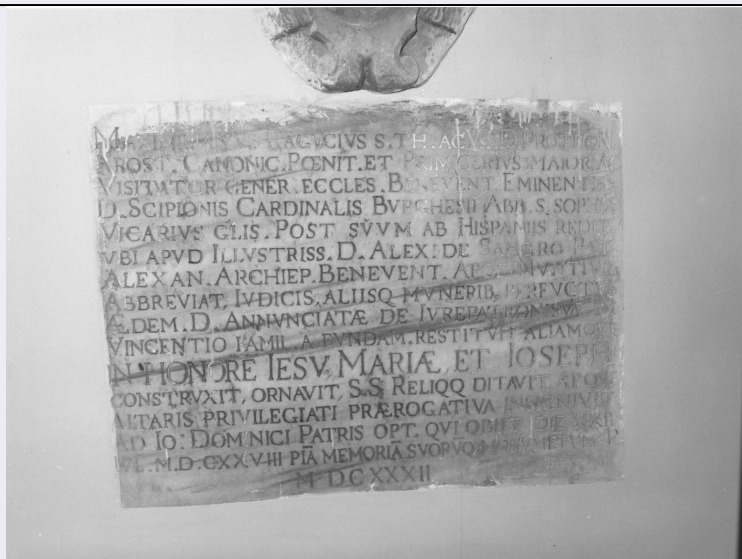 S. T H. AC V. I. D. PROTHON
APOST. CANONIC. POENIT. ET PRIMICERIVS MAIOR AC
VISITATOR GENER. ECCLES. BENEVENT. EMINENTISS
D. SCIPIONIS CARDINALIS BVRGHESII ABB. S. SOPHIAE
VICARIVS GLIS. POST SVVM AB HISPANIIS REDIT
VBI APVD ILLVSTRISS. D. ALEX. DE SANGRO PAT
ALEXAN. ARCHIEP. BENEVENT. NVNTIVM
ABBREVIAT. IVDICIS, ALIISQ MVNERIB. PERFVCT
ÆDEM. D. ANNVNCIATÆ DE IVREPATRON SVÆ
VINCENTIO FAMIL. A FVNDAM. RESTITVIT. ALIAMQ
IN HONORE IESV, MARIÆ, ET IOSEPH
CONSTRVXIT, ORNAVIT, S.S. RELIQQ DITAVIT, ATQVE
ALTARIS PRIVILEGIATI PRÆROGATIVA INSIGNIVIT
AD IO: DOMINICI PATRIS OPT. QVI OBIIT DIE
M.D.CXXVIII PIĀ MEMORIĀ SVORVQ MONVMETVM P
M DCXXXII